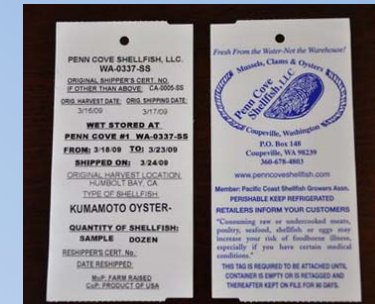 PENN COVE SHELLFISH, LLC.
WA-0337-SS
ORIGINAL SHIPPER'S CERT. NO.
IF OTHER THAN ABOVE: CA-0005-SS
ORIG. HARVEST DATE: ORIG. SHIPPING DATE:
3/16/09 3/17/09
WET STORED AT
PENN COVE #1 WA-0337-SS
FROM: 3/18/09 TO: 3/23/09
SHIPPED ON: 3/24/09
ORIGINAL HARVEST LOCATION:
HUMBOLT BAY, CA
TYPE OF SHELLFISH:
KUMAMOTO OYSTER-
QUANTITY OF SHELLFISH:
SAMPLE DOZEN
RESHIPPER'S CERT. No.
DATE RESHIPPED:
MoP: FARM RAISED
CoP: PRODUCT OF USA
Fresh From the Water-Not the Warehouse!
Mussels, Clams & Oysters
Penn Cove
Shellfish, LLC
Coupeville, Washington
P.O. Box 148
Coupeville, WA 98239
360-678-4803
www.penncoveshellfish.com
Member: Pacific Coast Shellfish Growers Assn.
PERISHABLE KEEP REFRIGERATED
RETAILERS INFORM YOUR CUSTOMERS
"Consuming raw or undercooked meats,
poultry, seafood, shellfish or eggs may
increase your risk of foodborne illness,
especially if you have certain medical
conditions."
THIS TAG IS REQUIRED TO BE ATTACHED UNTIL
CONTAINER IS EMPTY OR IS RETAGGED AND
THEREAFTER KEPT ON FILE FOR 90 DAYS.